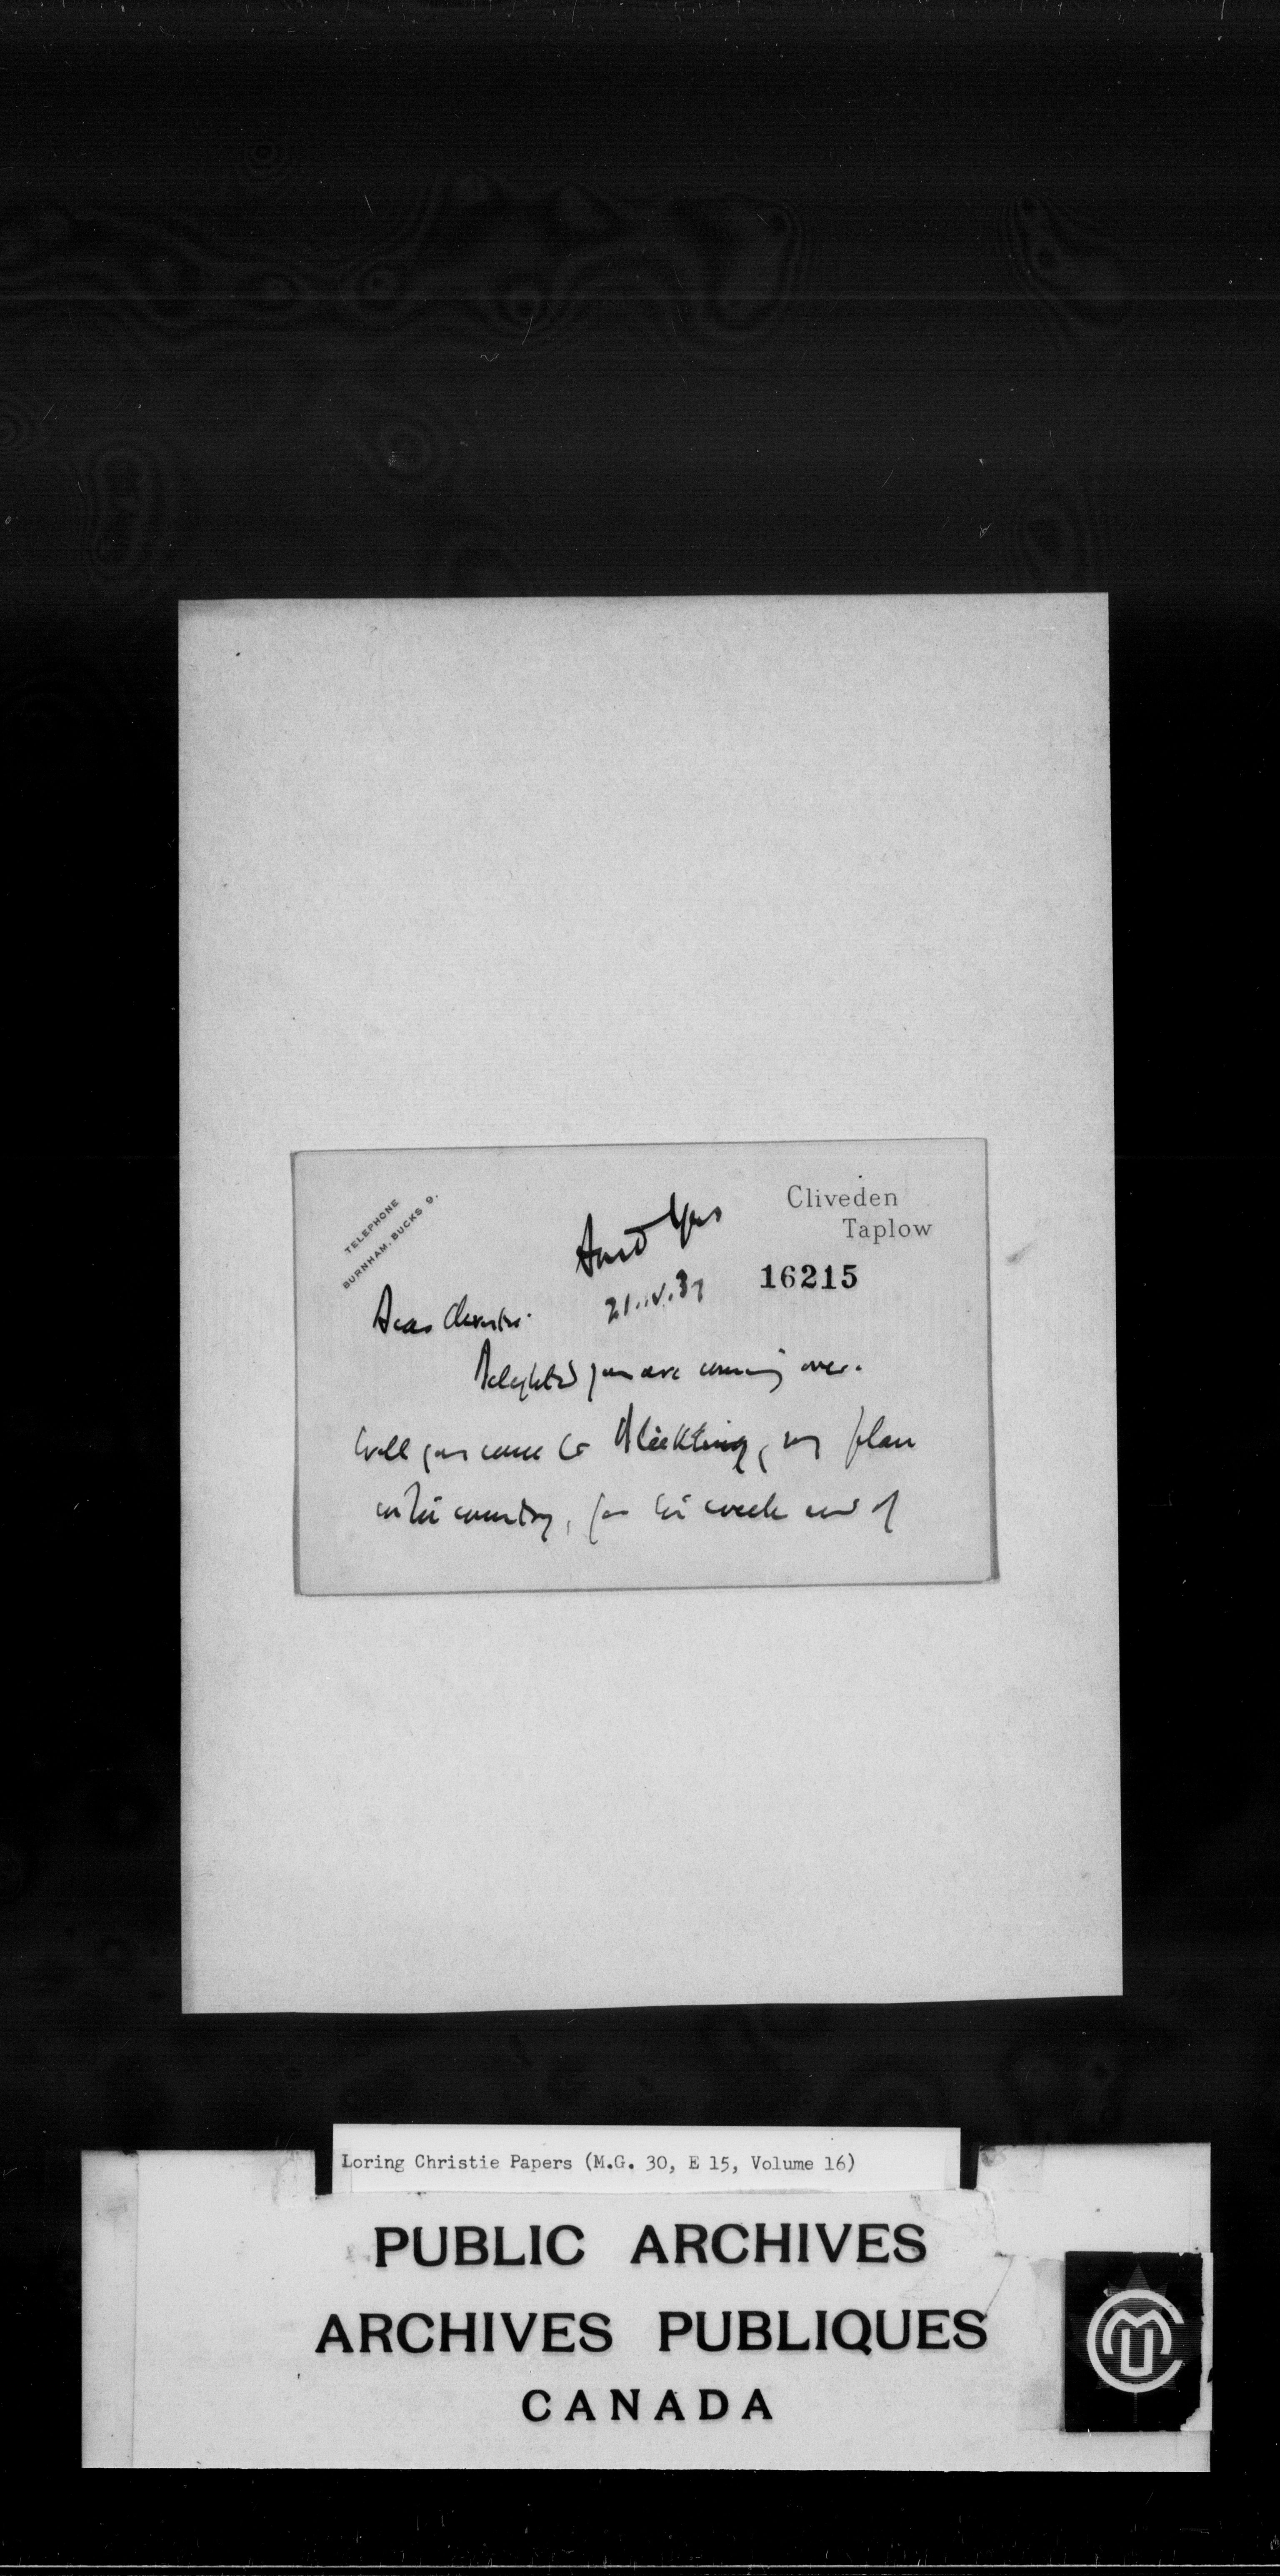 TELEPHONE
BURNHAM, BUCKS 9.
Cliveden
Taplow
16215
21.IV.37
Dear Christie.
Delighted you are coming over.
Will you come to Blickling, my place
in the country, for the week end of
Loring Christie Papers (M.G. 30, E 15, Volume 16)
PUBLIC ARCHIVES
ARCHIVES PUBLIQUES
CANADA